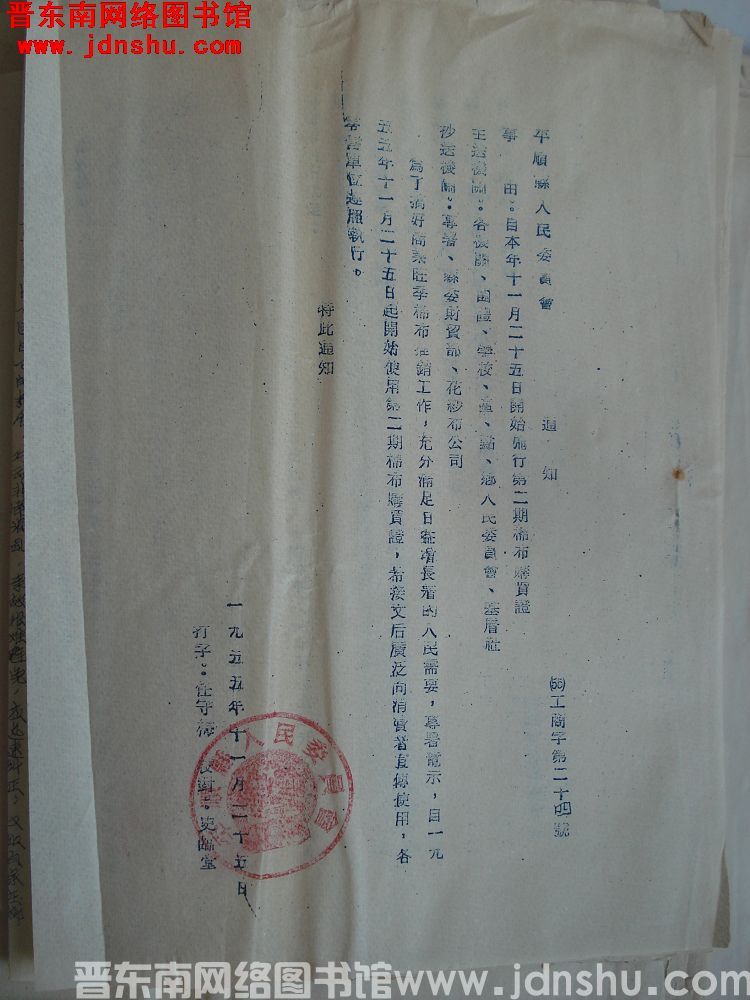 晋东南网络图书馆
www.jdnshu.com
平順縣人民委員會
通 知
(55)工商字第二十四號
事 由：自本年十一月二十五日開始施行第二期棉布購買證
主送機關：各機關、團體、学校、區、鎮、鄉人民委員會、基層社
抄送機關：專署、縣委財貿部、花紗布公司
為了搞好商業旺季棉布推銷工作，充分滿足日益增長着的人民需要，專署電示，自一九
五五年十一月二十五日起開始使用第二期棉布購買證，希接文后廣泛向消費者宣傳使用，各
零售單位遵照執行。
特此通知
一九五五年十一月二十五日
打字：任守 校對：史
縣人民委員會
晋东南网络图书馆 www.jdnshu.com